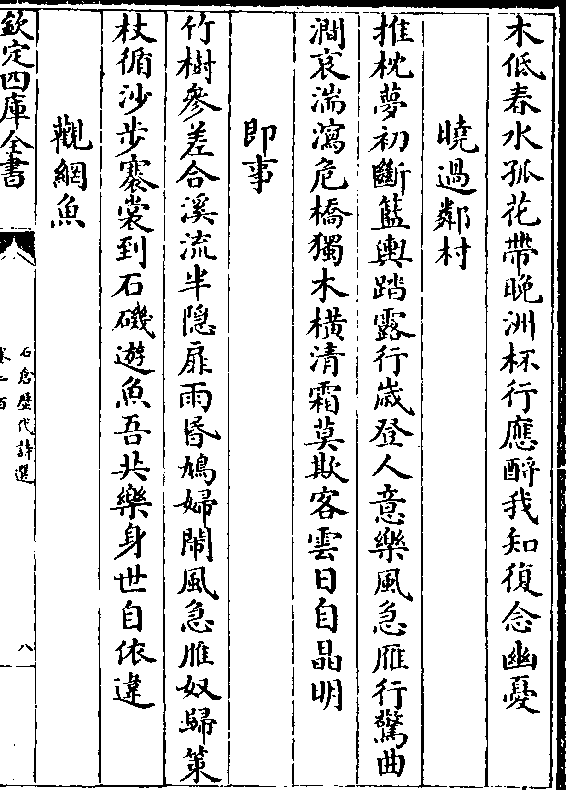 木低春水孤花帶晚洲杯行應醉我知復念幽憂
曉過鄰村
推枕夢初斷籃輿踏露行歲登人意樂風急雁行驚曲
澗哀湍瀉危橋獨木橫清霜莫欺客雲日自晶明
即事
竹樹參差合溪流半隱扉雨昏鳩婦鬧風急雁奴歸策
杖循沙步褰裳到石磯遊魚吾共樂身世自依違
觀網魚
欽定四庫全書
石倉歴代詩選
卷二百
八